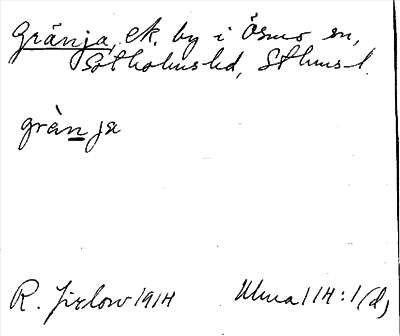 Gränja, ek. by i Ösmo sn,
Sotholms hd, Sthms l.
gränja
R. Jirlow 1914 Ulma 114:1(d)